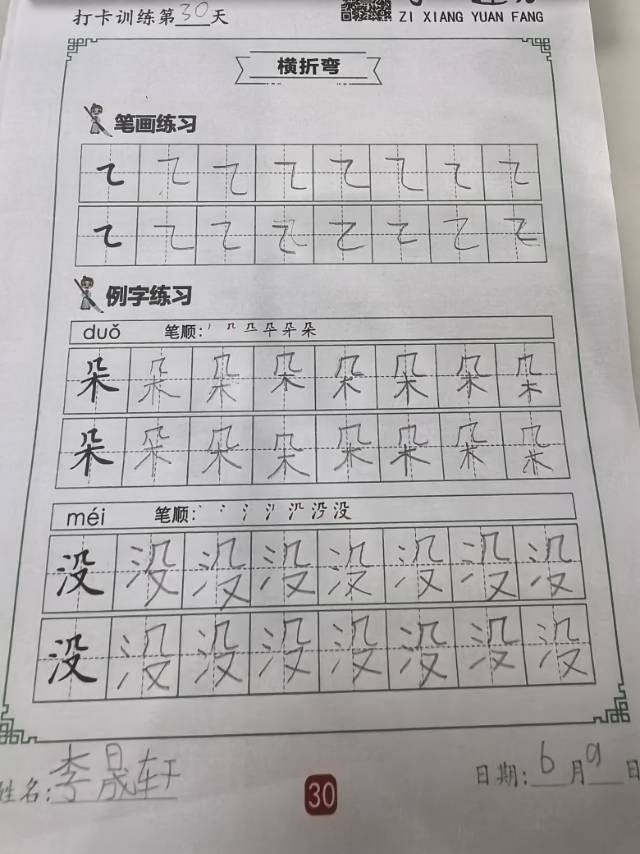 打卡训练第30天
ZI XIANG YUAN FANG
横折弯
笔画练习
例字练习
duǒ 笔顺:
朵 朵 朵 朵 朵 朵 朵 朵
朵 朵 朵 朵 朵 朵 朵 朵
méi 笔顺: 没
没 没 没 没 没 没 没 没
没 没 没 没 没 没 没 没
姓名:李晟轩
30
日期:6月9日